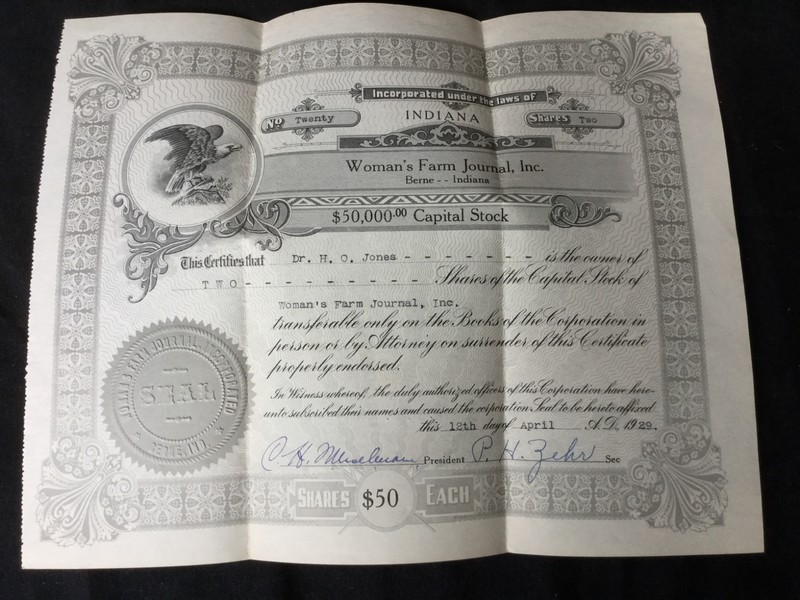 Incorporated under the laws of
INDIANA
No Twenty
Shares Two
Woman's Farm Journal, Inc.
Berne -- Indiana
$50,000.00 Capital Stock
This Certifies that Dr. H. O. Jones - - - - - - - is the owner of
TWO - - - - - - - - - - Shares of the Capital Stock of
Woman's Farm Journal, Inc.
transferable only on the Books of the Corporation in
person or by Attorney on surrender of this Certificate
properly endorsed.
In Witness whereof, the duly authorized officers of this Corporation have here-
unto subscribed their names and caused the corporation Seal to be hereto affixed
this 12th day of April A.D. 1929.
C. H. Muselman, President P. H. Zehr Sec
SHARES $50 EACH
SEAL